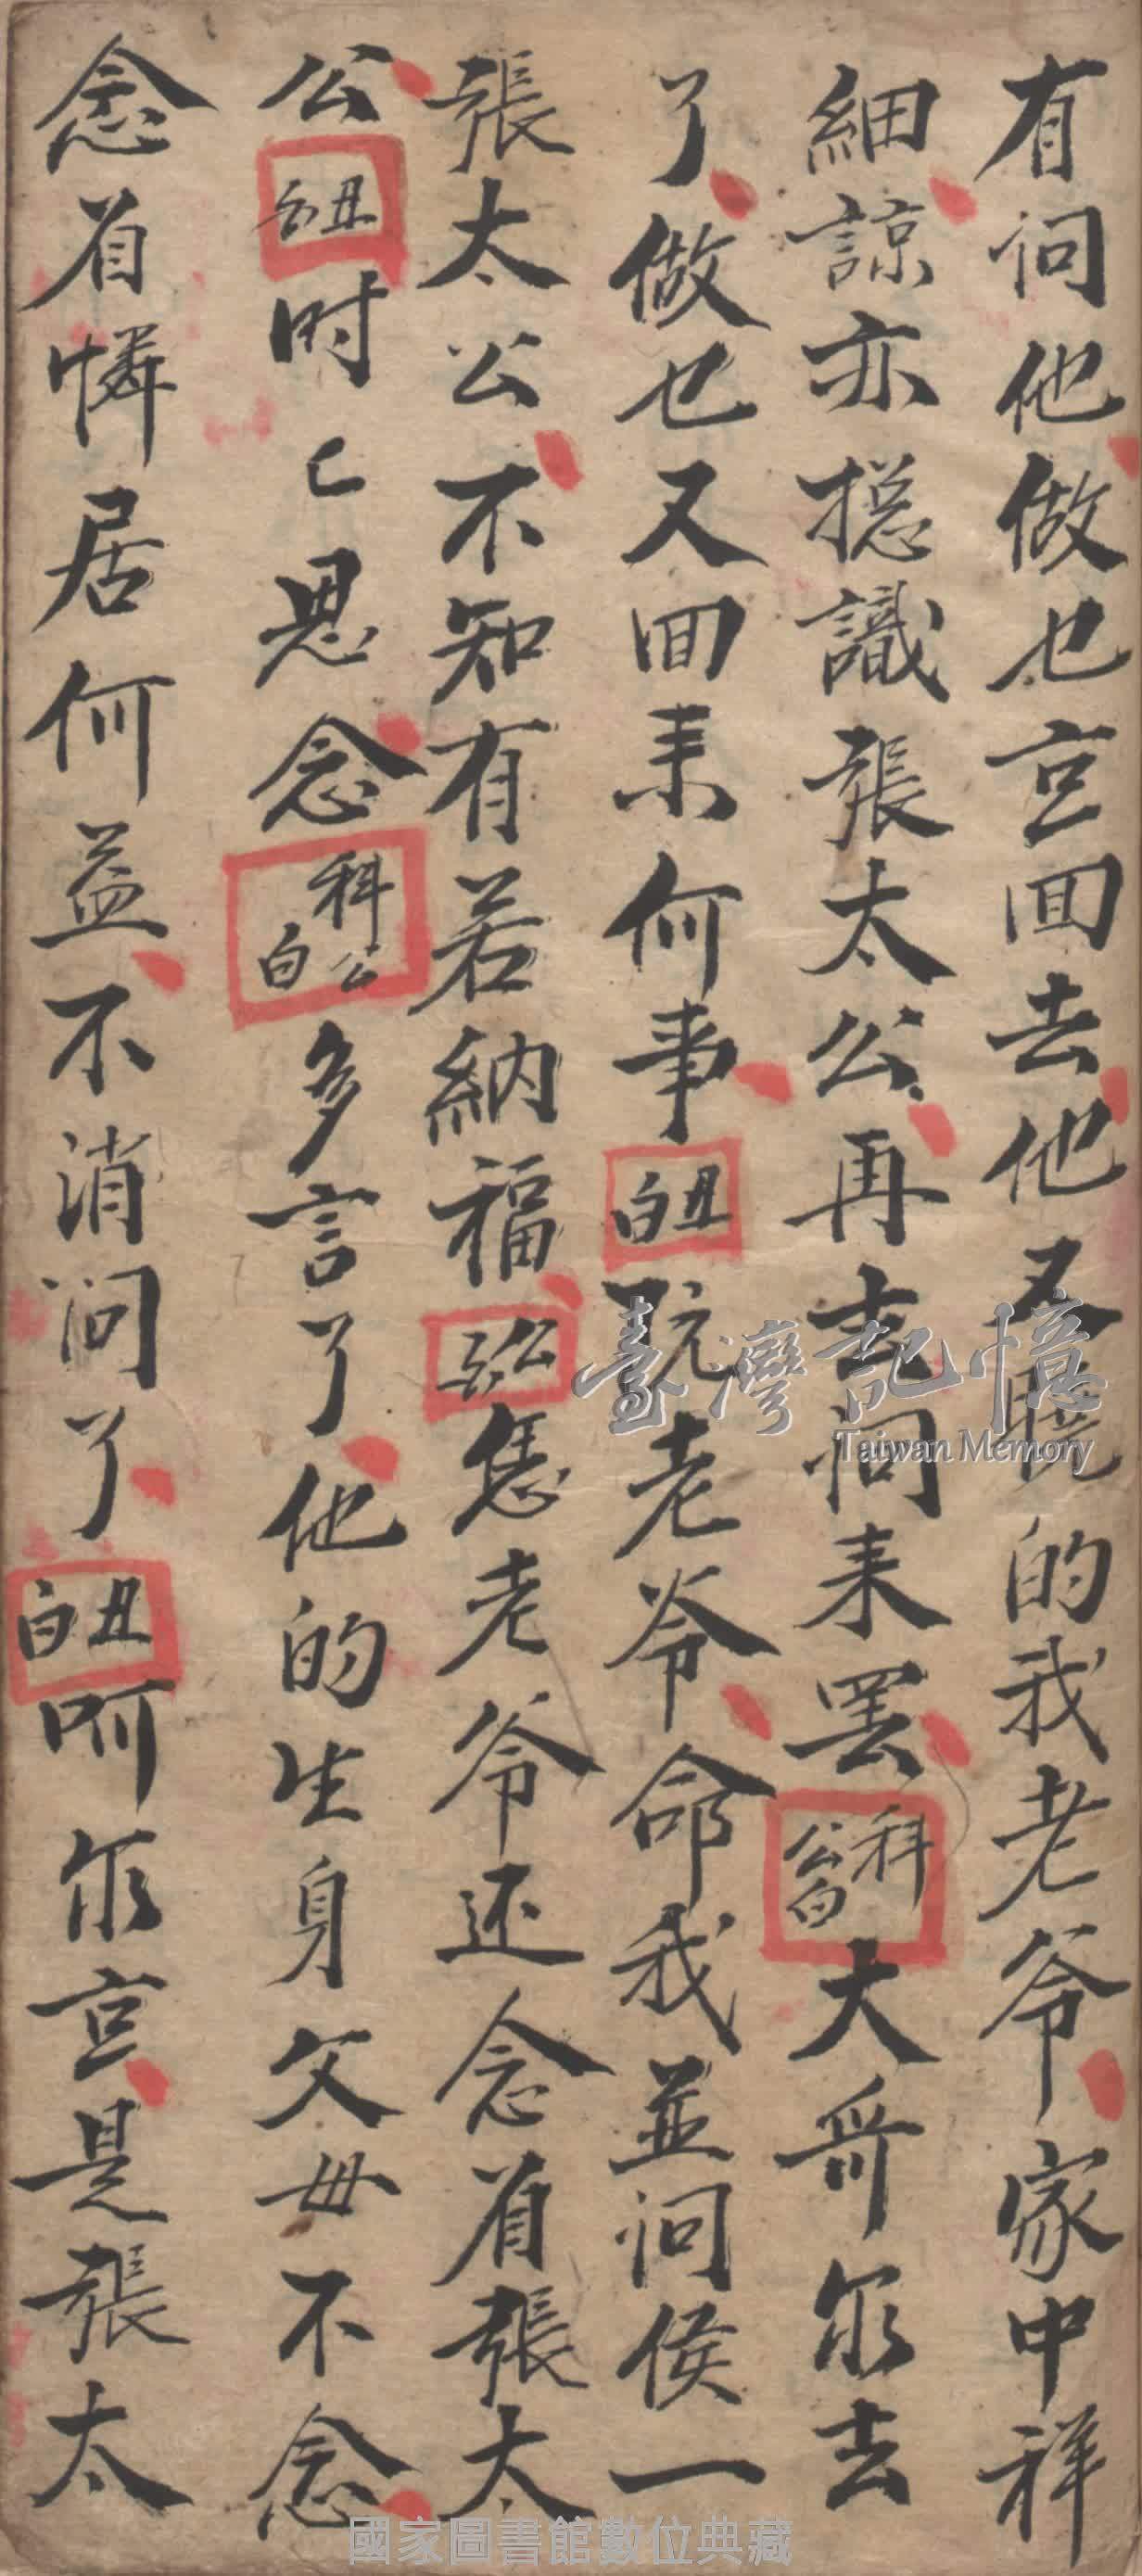 有问他做乜言回去他又曉的我老爺家中祥
細諒亦摠識張太公再去问来罢科公白大哥尔去
了做乜又回来何事丑白阮老爷命我並问侯一
張太公不知有若納福公恁老爷还念着張太
公丑白时亡思念科公白多言了他的生身父毋不念
念着憐居何益不消问了丑白呵尔言是張太
臺灣記憶
Taiwan Memory
國家圖書館數位典藏